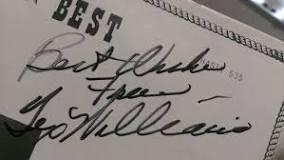 BEST
Best Wishes
From
Ted Williams
535